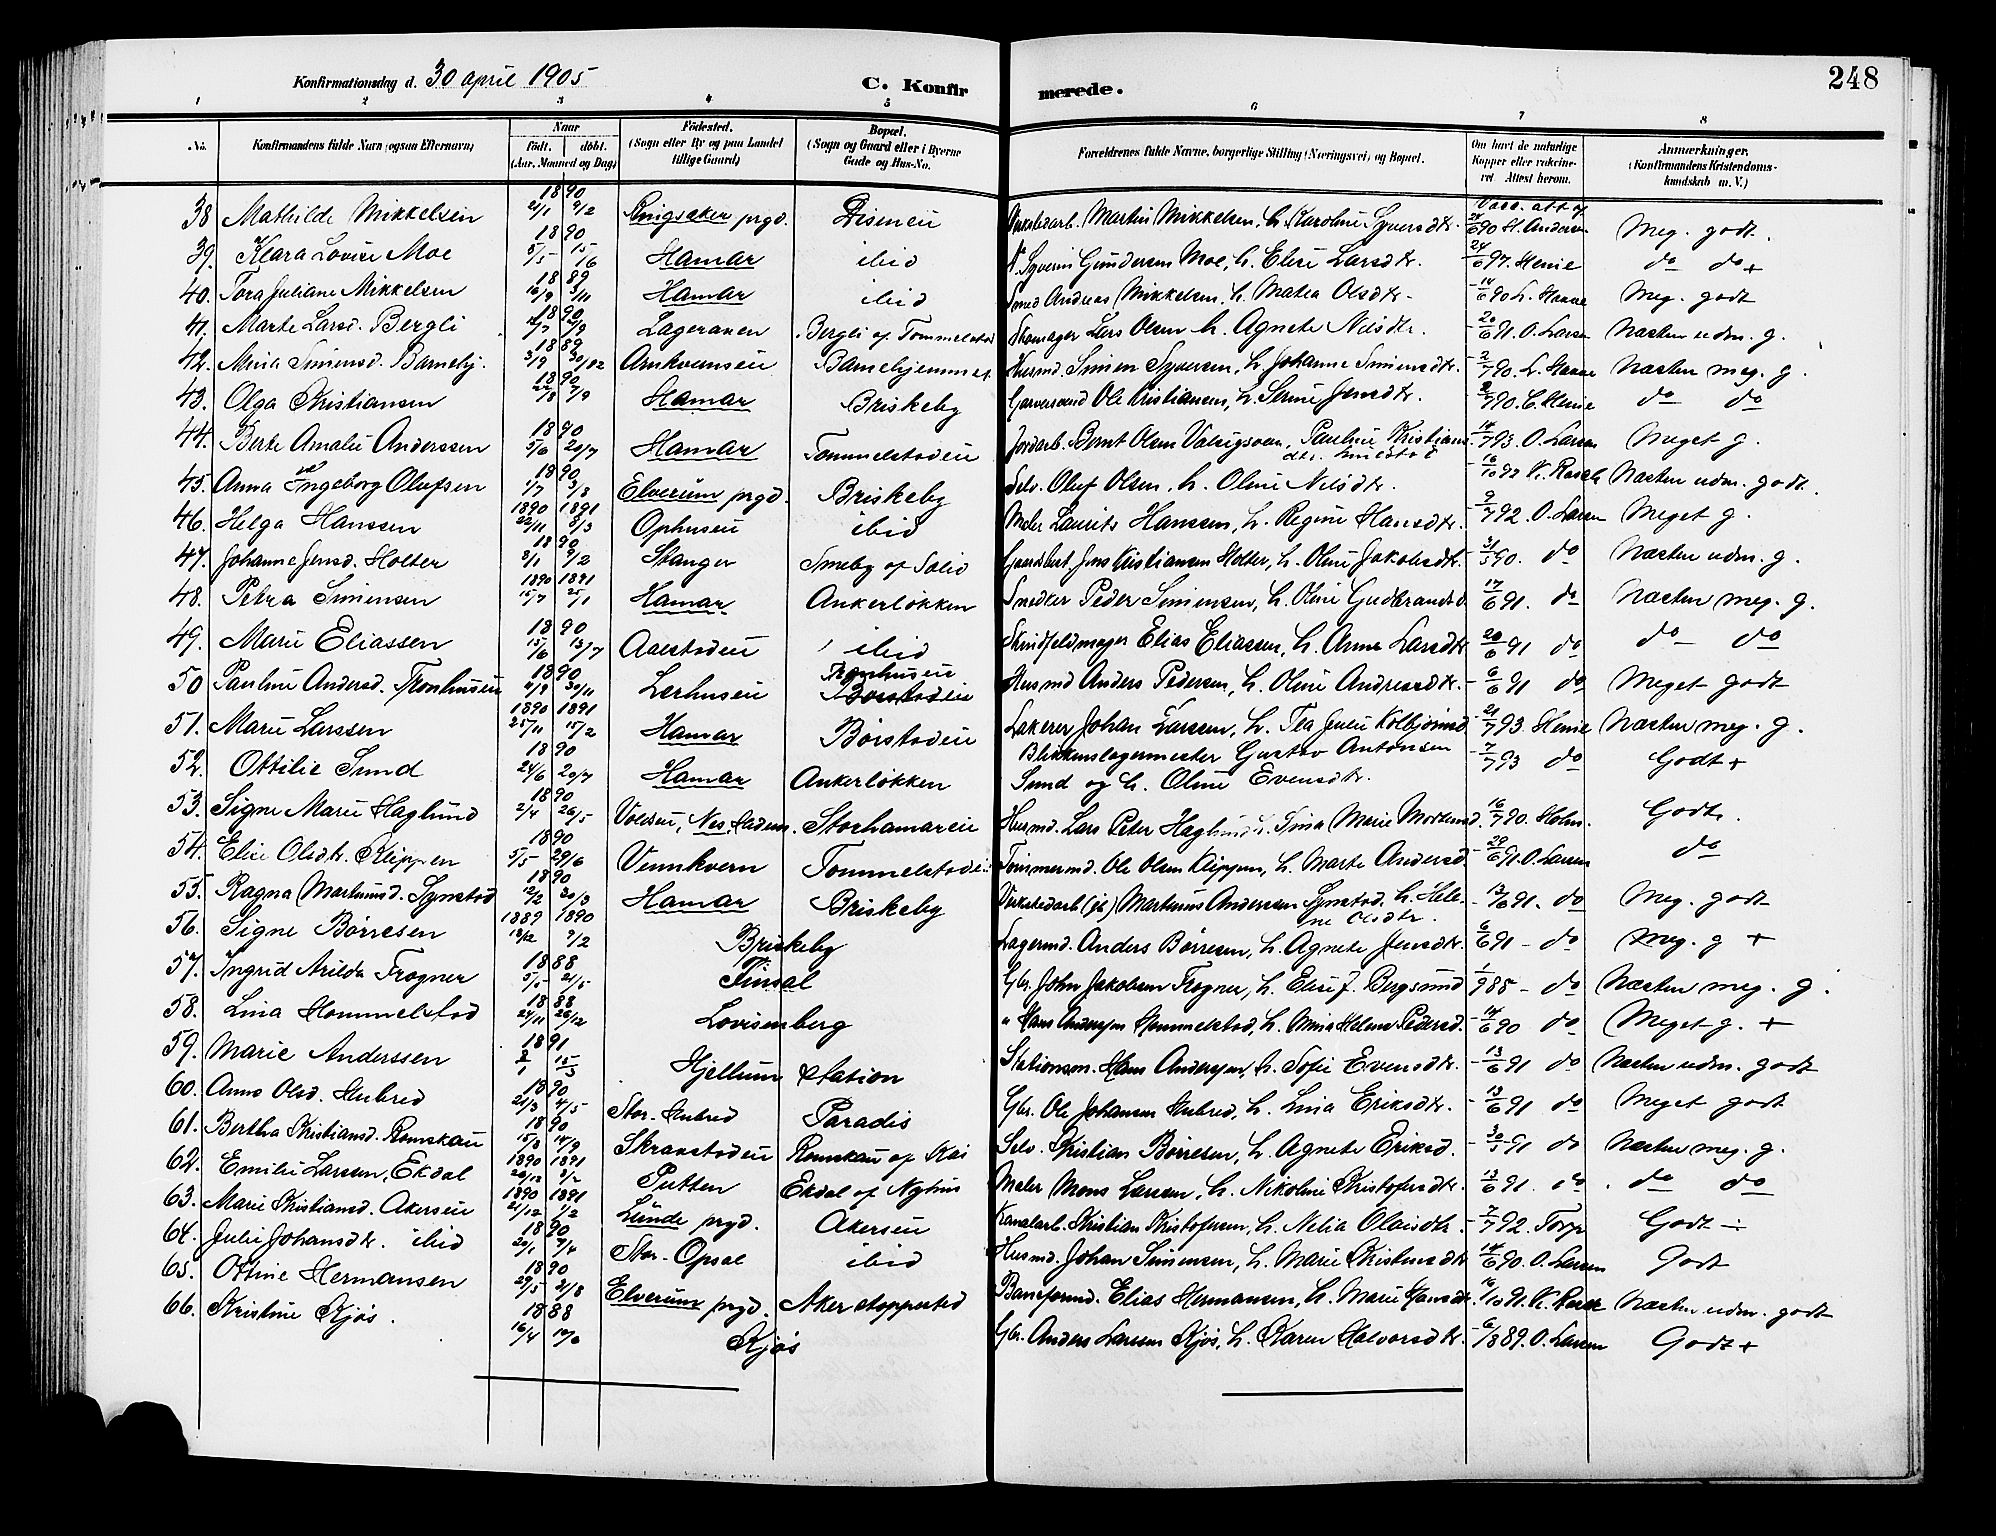 248
Konfirmationsdag d. 30 april 1905 C. Konfirmerede.
1 2 3 4 5 6 7 8
No. Konfirmandens fulde Navn (ogsaa Efternavn) Naar født. døbt. (Aar, Maaned og Dag) Fødested. (Sogn eller By og paa Landet tillige Gaard) Bopæl. (Sogn og Gaard eller i Byerne Gade og Hus-No. Forældrenes fulde Navne, borgerlige Stilling (Næringsvei) og Bopæl. Om havt de naturlige Kopper eller vakcineret. Attest herom. Anmærkninger. (Konfirmandens Kristendomskundskab m. V.)
38 Mathilde Mikkelsen 1890 21/1 9/2 Ringsaker prgd. Disenen Martin Mikkelsen, h. Karoline Syversdtr. Vacc. att af 24/6 90 H. Andersen Meg. godt.
39. Klara Lovise Moe 1890 5/5 15/6 Hamar ibid Syverin Gundersen Moe, h. Elise Larsdtr. 24/6 97. Henie do do +
40. Tora Juliane Mikkelsen 1889 16/9 3/11 Hamar ibid Smed Andreas Mikkelsen, h. Matea Olsdtr. 14/6 90 L. Hanne Meg. godt
41. Marte Larsd. Bergli 1890 Lageraaen Bergli af Tommelstad Skomager Lars Olsen h. Agnete Nilsdtr. 20/6 91. O. Larsen Næsten udm. g.
42. Mina Simensd. Barnehj. 1889 3/9 30/12 Arnkvænseie Barnehjemmet Husmd. Simen Syversen, h. Johanne Simensdtr. 2/7 90. L. Hanne Næsten meg. g.
43. Olga Kristiansen 1890 Hamar Briskeby Garversvend Ole Kristiansen, h. Serine Jensdtr. 2/7 90. C. Henie do do
44. Berte Amalie Anderssen 1890 5/6 20/7 Hamar Tommelstadeie Jordarb. Bernt Olsen Valsigsveen, Pauline Kristiansdtr. 14/7 93. O. Larsen Meget g.
45. Anna Ingeborg Olufsen 1890 1/7 3/8 Elverum prgd. Briskeby Selv. Oluf Olsen, h. Oline Nilsdtr. 16/10 92 K. Rasch Næsten udm. godt.
46. Helga Hanssen 1890 1891 22/11 8/3 Ophuseie ibid Maler Laurits Hanssen, h. Regine Hansdtr. 9/7 92. O. Larsen Meget g.
47. Johanne Jensd. Holter 1890 9/2 Stanger Smeby af Sælid Jens Kristiansen Holter, h. Oline Jakobsdtr. 31/5 90. do Næsten udm. g.
48. Petra Simensen 1890 1891 15/7 25/1 Hamar Ankerløkken Snedker Peder Simensen, h. Oline Gudbrandsd. 17/6 91. do Næsten meg. g.
49. Marie Eliassen 1890 15/6 13/7 Aaestadeie ibid Skindfeldmager Elias Eliassen, h. Anne Larsdtr. 20/6 91 do do do
50 Pauline Andersd. Tronhuseie 1890 4/9 30/11 Lerhuseie Tronhuseie Husmd Anders Pedersen, h. Oline Andreasdtr. 6/6 91 do Meget godt
51. Marie Larssen 1890 1891 25/11 15/2 Hamar Børstadeie Lakerer Johan Larssen, h. Tea Julie Kolbjørnsd. 21/7 93 Henie Næsten meg. g.
52. Ottilie Sund 1890 24/6 20/7 Hamar Ankerløkken Blikkenslagermester Gustav Antonsen Sund og h. Oline Evensdtr. 7/7 93 do Godt +
53. Signe Marie Haglund 1890 2/4 26/5 Voldseie, Nes, Hedem. Storhamareie Husmd. Lars Peter Haglund h. Tina Marie Mortensd. 16/7 90. Holm. Godt.
54. Elise Olsdtr. Klippen 1890 5/5 29/6 Vennkvern Tommelstadeie Tømmermd. Ole Olsen Klippen, h. Marte Andersd. 20/6 91. O. Larsen do
55. Ragna Martinusd. Lynstad 1890 12/2 30/3 Hamar Briskeby Verkstedarb. Martinus Andersen Lynstad h. Helene Olsdtr. 13/6 91. do Meg. godt
56. Signe Børresen 1889 1890 18/12 9/2 Briskeby Lagermd. Anders Børresen, h. Agnete Jensdtr. 6/6 91 - do Meg. g +
57. Ingrid Arilda Frogner 1888 5/5 21/5 Finsal Gbr. John Jakobsen Frogner, h. Elise J. Bergsund 1/9 88 - do Næsten meg. g.
58. Lina Hommelstad 1888 24/11 26/12 Lovisenberg " Hans Andersen Hommelstad, h. Anna Helene Pedersd. 14/6 90 do Meget g. +
59. Marie Anderssen 1891 2/1 15/3 Hjellum Station Stationsm. Hans Andersen, h. Sofie Evensdtr. 13/6 91 do Næsten udm. godt
60. Anne Olsd. Hubred 1890 21/3 4/5 Stor-Hubred Paradis Gbr. Ole Johansen Hubred, h. Lina Eriksdtr. 13/6 91 do Meget godt
61. Bertha Kristiansd. Romskau 1890 15/8 14/9 Skranstadeie Romskau af Kai Selv. Kristian Børresen, h. Agnete Eriksd. 30/5 91 do Næsten meg. g.
62. Emilie Larssen, Ekdal 1890 1891 Putten Ekdal af Nyhus Maler Mons Larssen, h. Nikoline Kristofersdtr. 13/6 91. do do do
63. Marie Kristiansd. Akerseie 1890 1891 21/12 1/2 Lunde prgd. Akerseie Kanalarb. Kristian Kristofersen, h. Nelia Olavsdtr. 7/7 92. Torp Godt ÷
64. Julie Johansdtr. ibid 1890 20/1 7/4 Stor-Opsal ibid Husmd. Johan Simensen, h. Marie Kristensdtr. 14/6 90. O. Larsen Godt
65. Ottine Hermansen 1890 29/5 21/8 Elverum prgd. Aker stoppested Baneformd. Elias Hermansen, h. Marie Hansdtr. 16/10 91. K. Rasch Næsten udm. godt
66. Kristine Kjøs. 1888 16/4 10/6 Kjøs Gbr. Anders Larssen Kjøs, h. Karen Halvorsdtr. 6/8 89. O. Larsen Godt +